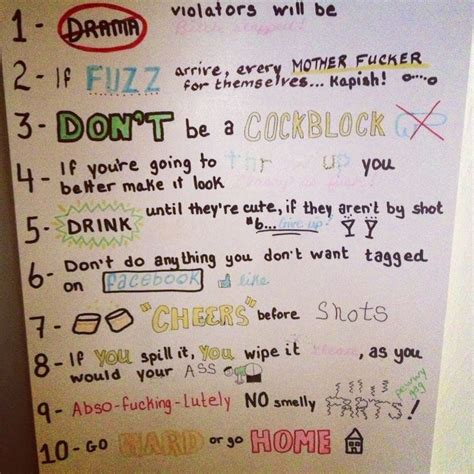 1 - DRAMA violators will be
Bitch slapped!
2 - If FUZZ arrive, every MOTHER FUCKER
for themselves... Kapish!
3 - DON'T be a COCKBLOCK
4 - If you're going to thr w up you
better make it look
5 - DRINK until they're cute, if they aren't by shot
"6... Give up!
6 - Don't do anything you don't want tagged
on facebook like
7 - "CHEERS" before Shots
8 - If YOU spill it, YOU wipe it clean, as you
would your ASS
9 - Abso-fucking-Lutely NO smelly FARTS!
10 - GO HARD or go HOME